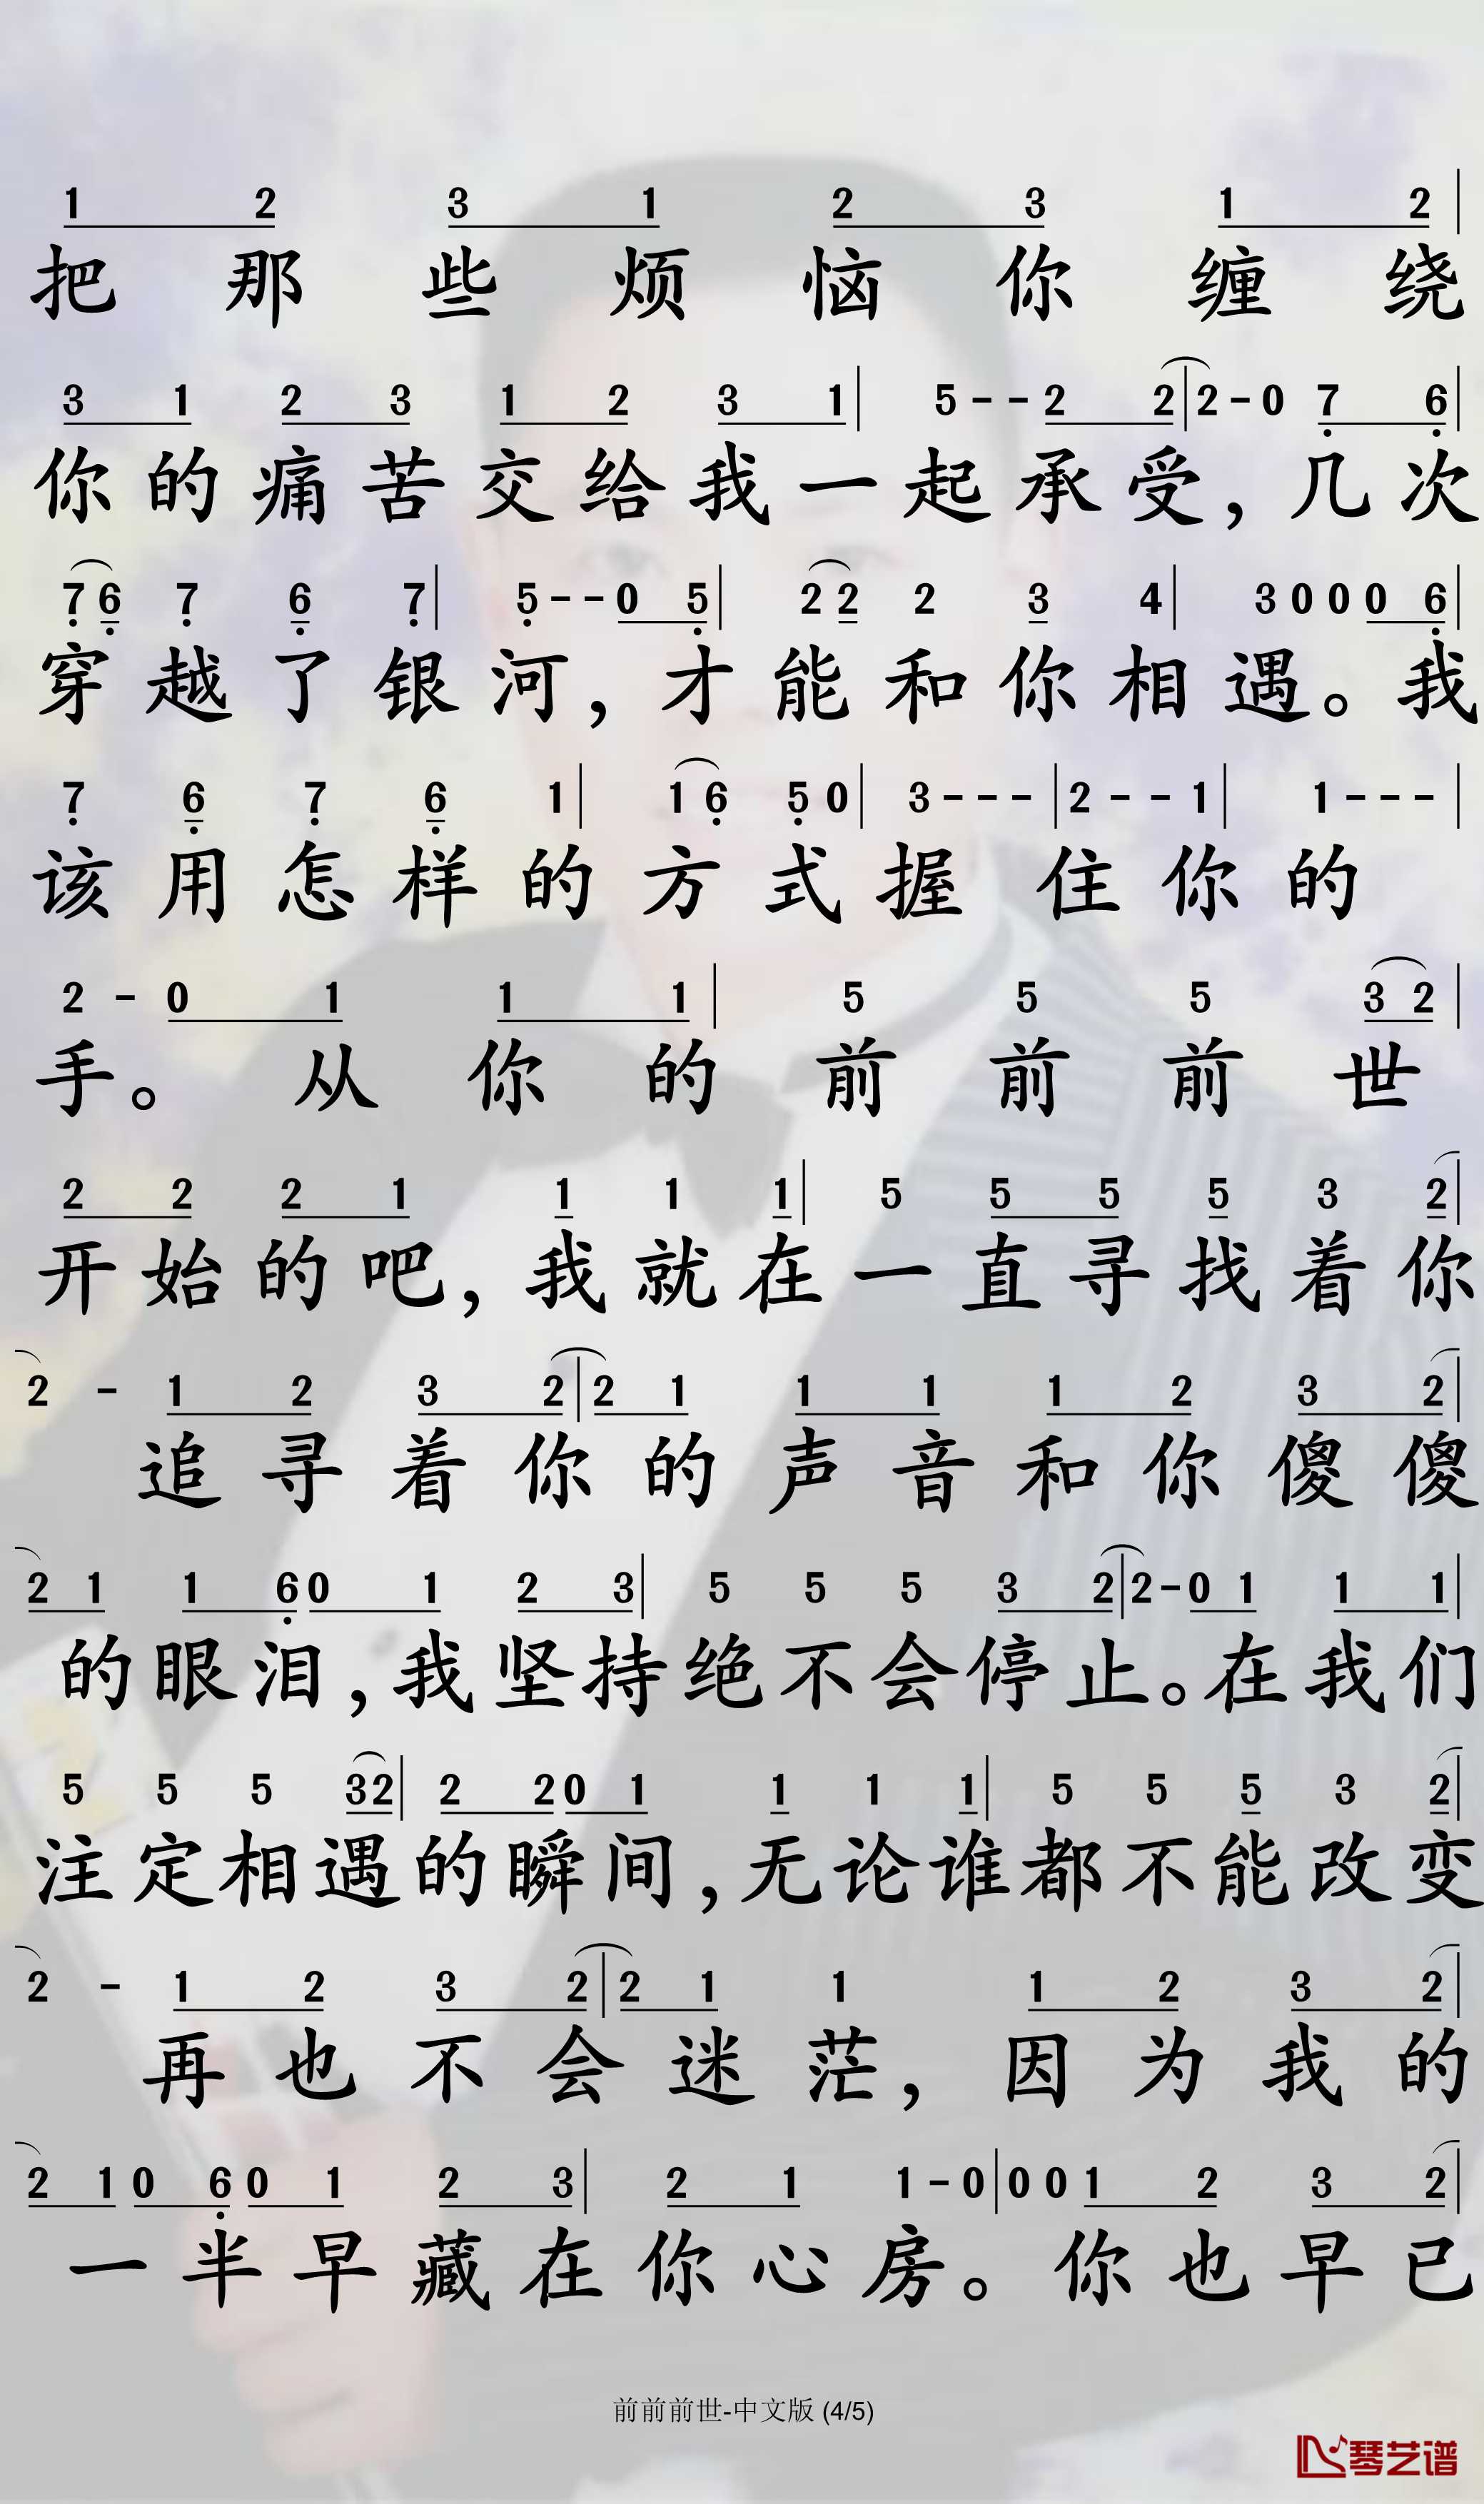 1 2 3 1 2 3 1 2 |
把那些烦恼你缠绕
3 1 2 3 1 2 3 1 | 5 - - 2 2 | 2 - 0 7 6 |
你的痛苦交给我一起承受，几次
7 6 7 6 7 | 5 - - 0 5 | 2 2 2 3 4 | 3 0 0 0 6 |
穿越了银河，才能和你相遇。我
7 6 7 6 1 | 1 6 5 0 | 3 - - - | 2 - - 1 | 1 - - - |
该用怎样的方式握住你的
2 - 0 1 1 1 | 5 5 5 3 2 |
手。从你的前前前世
2 2 2 1 1 1 1 | 5 5 5 5 3 2 |
开始的吧，我就在一直寻找着你
2 - 1 2 3 2 | 2 1 1 1 1 2 3 2 |
追寻着你的声音和你傻傻
2 1 1 6 0 1 2 3 | 5 5 5 3 2 | 2 - 0 1 1 1 |
的眼泪，我坚持绝不会停止。在我们
5 5 5 3 2 | 2 2 0 1 1 1 1 | 5 5 5 3 2 |
注定相遇的瞬间，无论谁都不能改变
2 - 1 2 3 2 | 2 1 1 1 2 3 2 |
再也不会迷茫，因为我的
2 1 0 6 0 1 2 3 | 2 1 1 - 0 | 0 0 1 2 3 2 |
一半早藏在你心房。你也早已
前前前世-中文版 (4/5)
琴艺谱